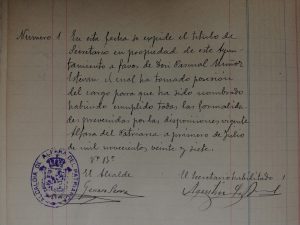 Número 1 En esta fecha se expide el título de
Secretario en propiedad de este Ayun-
tamiento a favor de Don Pascual Muñoz
Estevan el cual ha tomado posesión
del cargo para que ha sido nombrado
habiendo cumplido todas las formalida-
des prevenidas por las disposiciones vigente
Alfara del Patriarca a primero de Julio
de mil novecientos veinte y siete.
Vº Bº
El Alcalde
El Secretario habilitado
ALCALDIA DE ALFARA DEL PATRIARCA